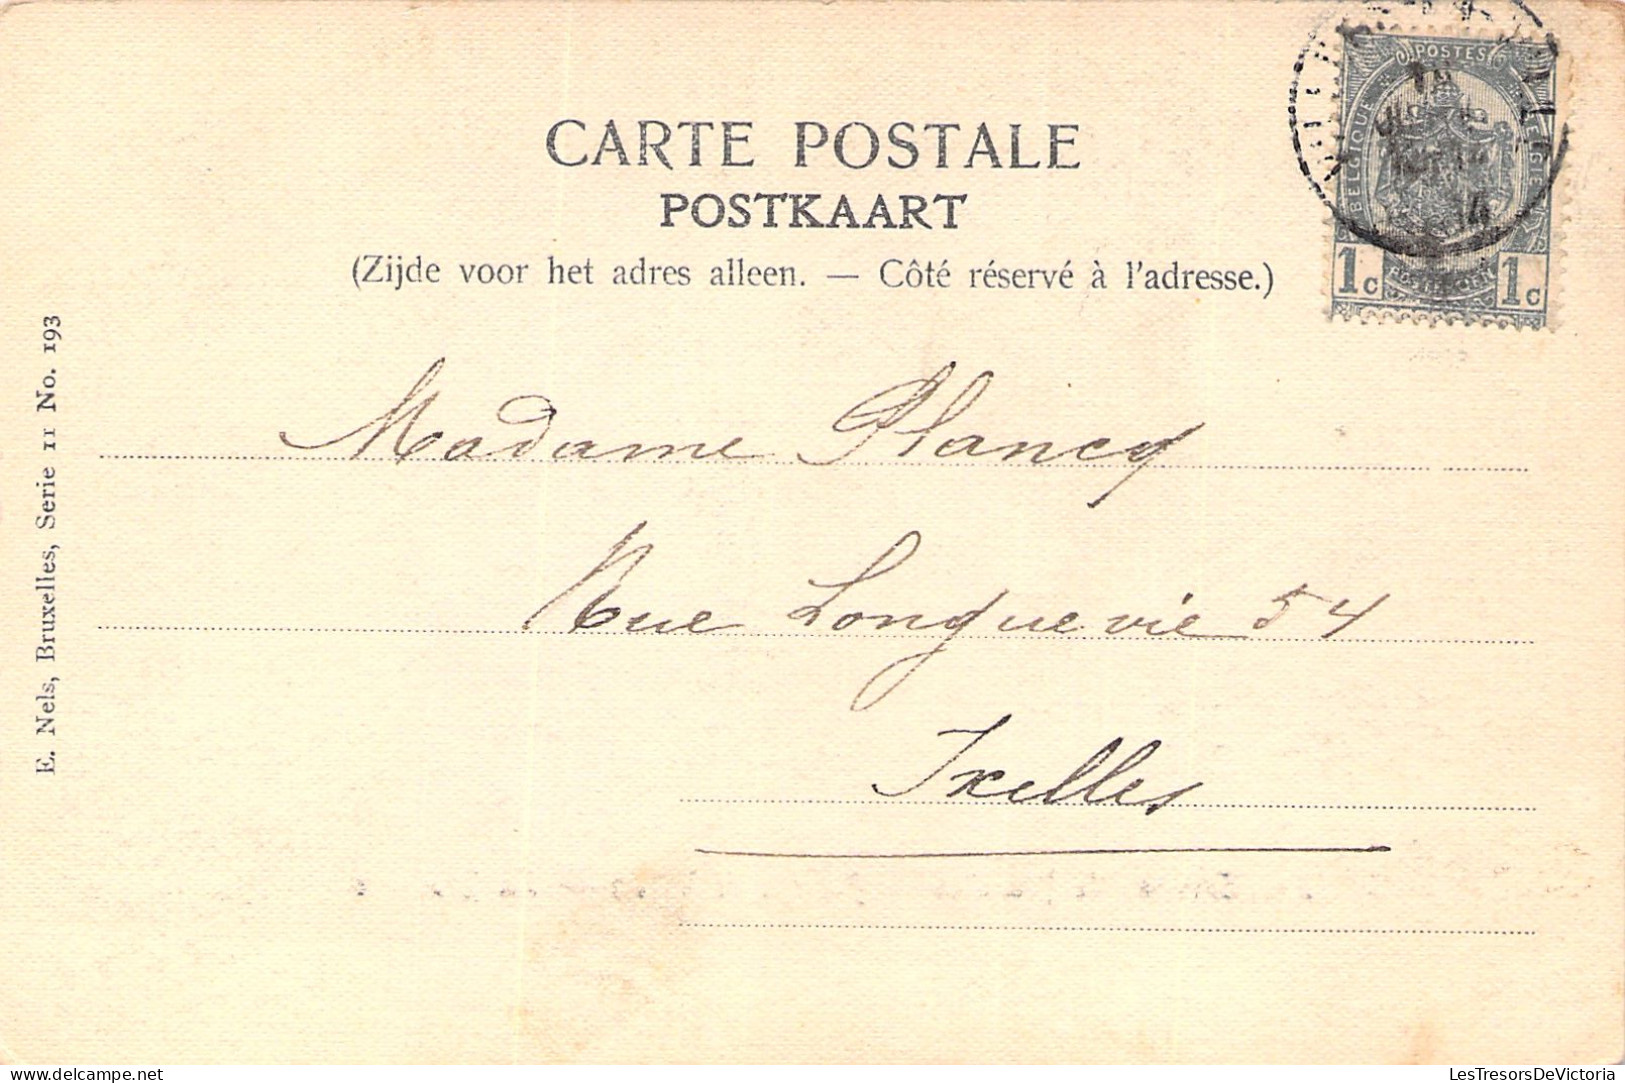 CARTE POSTALE
POSTKAART
(Zijde voor het adres alleen. — Côté réservé à l'adresse.)
POSTES
BELGIQUE
1c 1c
E. Nels, Bruxelles, Serie 11 No. 193
Madame Plancq
Rue Longue vie 54
Ixelles
© LesTresorsDeVictoria